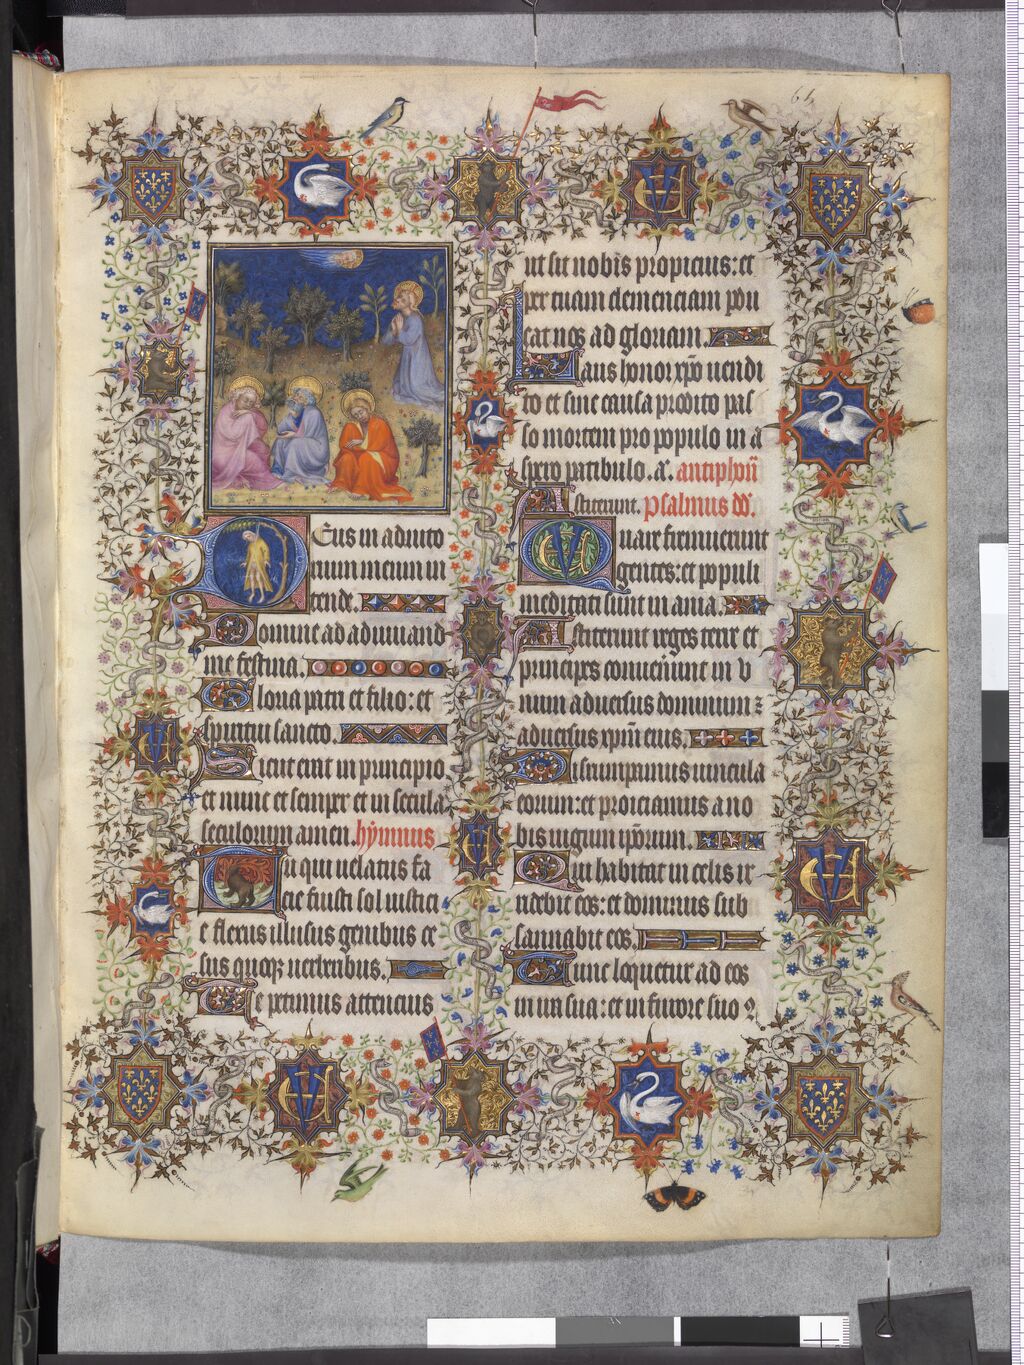 61
Deus in adiuto
rium meum in
tende.
Domine ad adiuuand
me festina.
Gloria patri et filio: et
spiritui sancto.
Sicut erat in principio
et nunc et semper et in secula
seculorum amen. hymnus
Tu qui uelatus fa
cie fuisti sol iustici
e flexus illusus genibus ce
sus quoq; uerberibus.
Te petimus attencius
ut sit nobis propicius: et
per tuam clemenciam pou
cat nos ad gloriam.
Laus honor xpo uendi
to et sine causa prodito pas
so mortem pro populo in a
spero patibulo. a. antiphon
Astiterunt. Psalmus dd.
Quare fremuerunt
gentes: et populi
meditati sunt in ania.
Astiterunt reges terre et
principes conuenerunt in v
num aduersus dominum z
aduersus xpm eius.
Dirumpamus uincula
eorum: et proiciamus a no
bis iugum iporum.
Qui habitat in celis ir
ridebit eos: et dominus sub
sannabit eos.
Tunc loquetur ad eos
in ira sua: et in furore suo